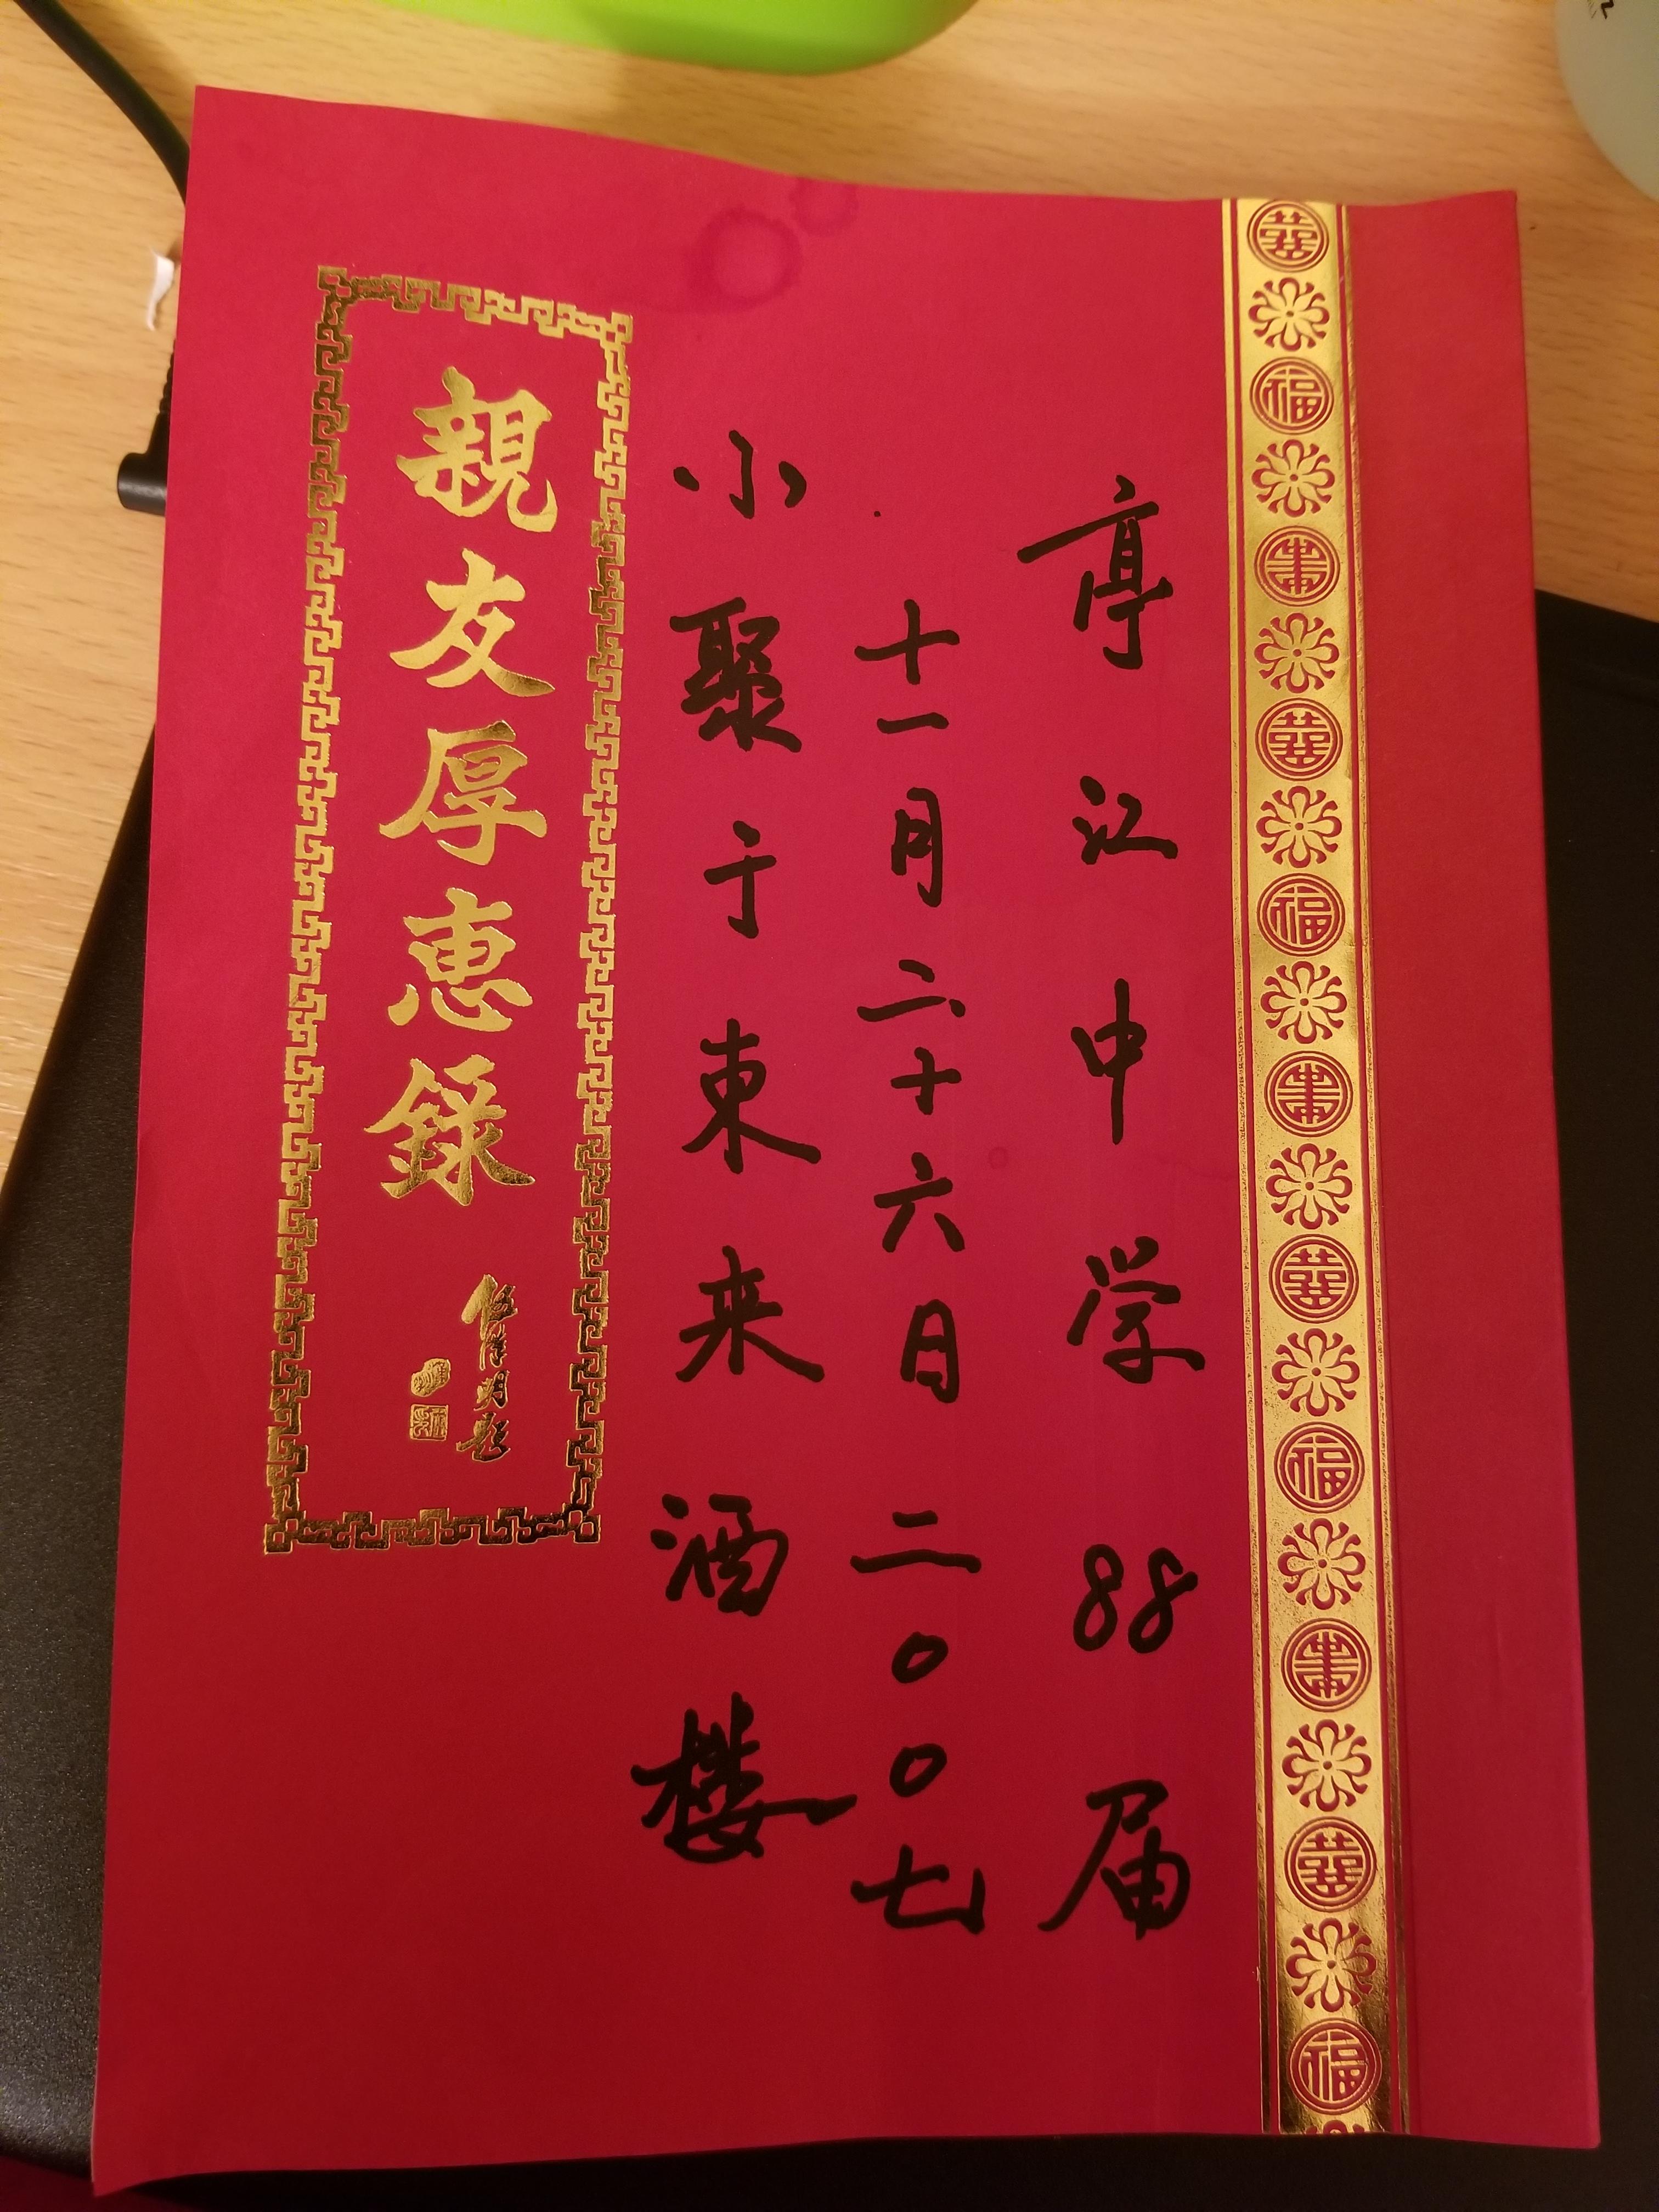 亭江中学88届
十一月二十六日二００七
小聚于東来酒楼
親友厚惠錄